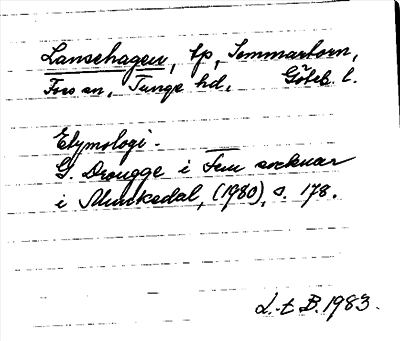 Lansehagen, tp, Sommartorn,
Foss sn, Tunge hd, Göteb. l.
Etymologi.
G. Drougge i Fem socknar
i Munkedal, (1980), s. 178.
L-t B. 1983.